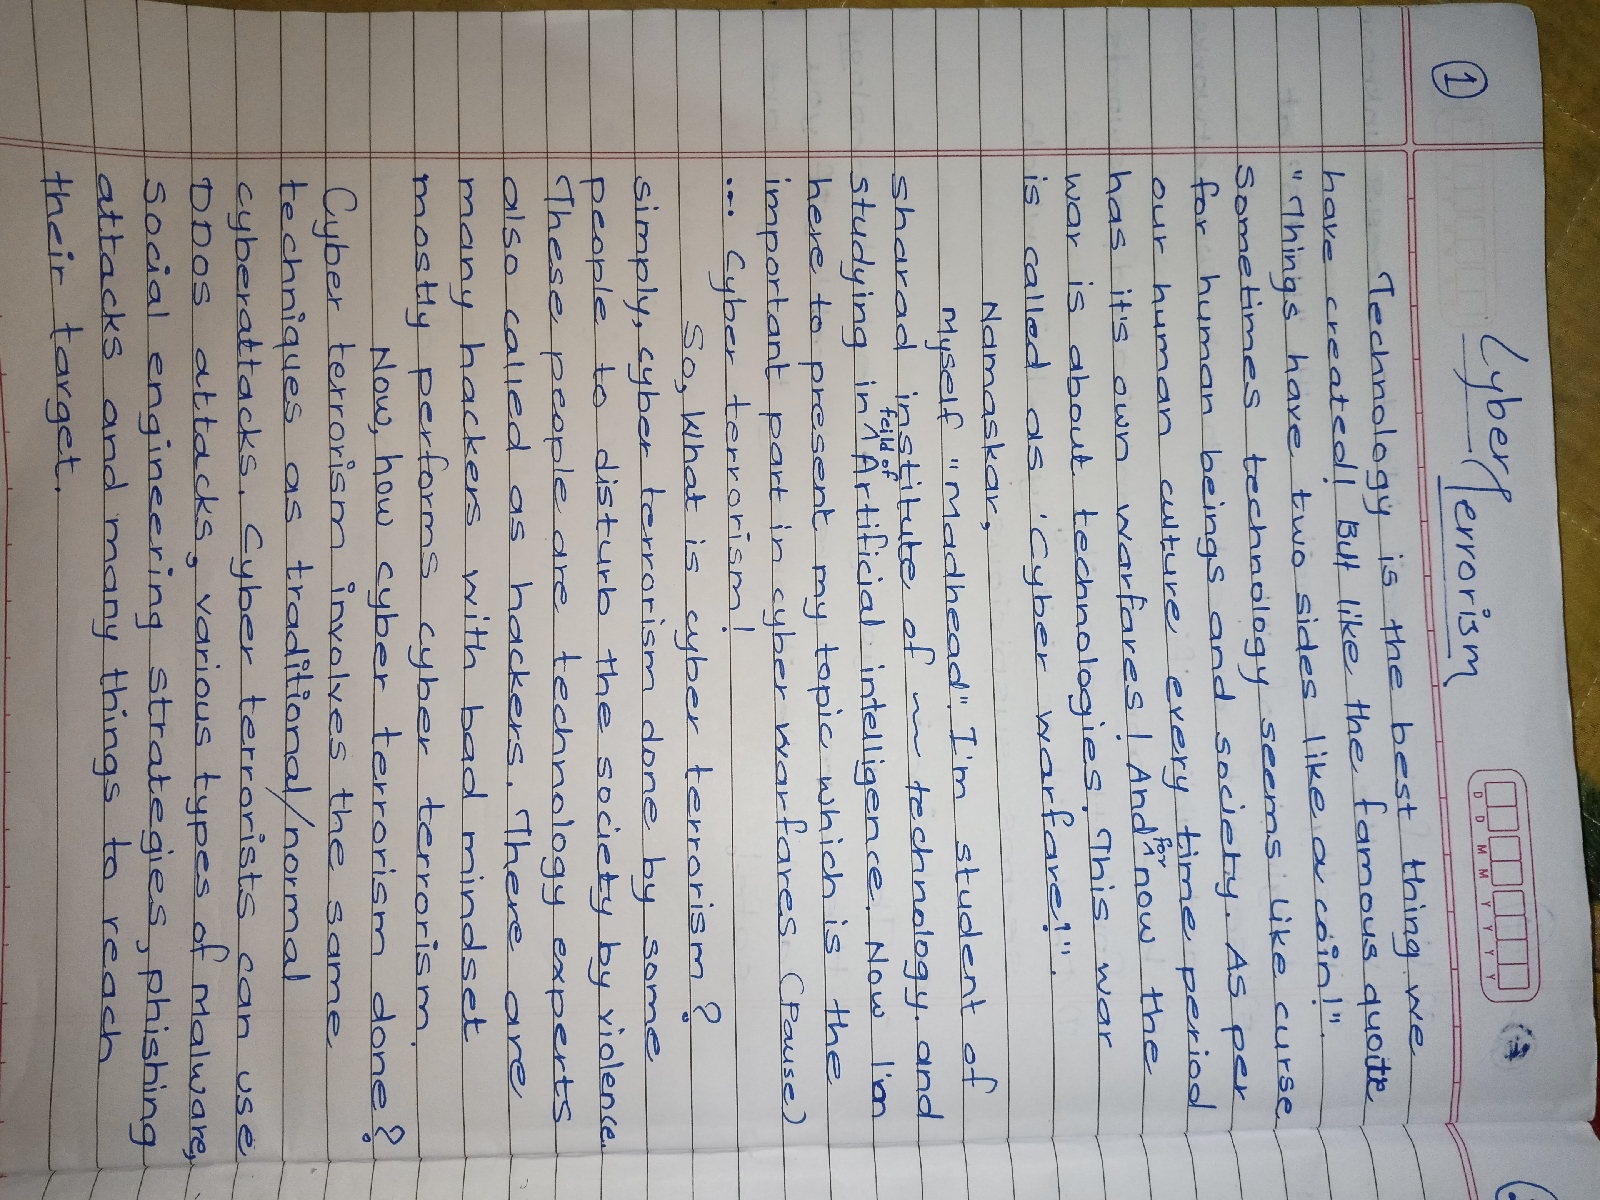 1
Cyber Terrorism
D D M M Y Y Y Y
Technology is the best thing we
have created! But like the famous quote
"Things have two sides like a coin!".
Sometimes technology seems like curse
for human beings and society. As per
our human culture every time period
has its own warfares! And for now the
war is about technologies. This war
is called as 'Cyber warfare!".
Namaskar,
Myself "Madhead". I'm student of
sharad institute of technology. and
studying in feild of Artificial intelligence. Now I'm
here to present my topic which is the
important part in cyber warfares (Pause)
... Cyber terrorism!
So, What is cyber terrorism?
simply, cyber terrorism done by some
people to disturb the society by violence.
These people are technology experts
also called as hackers. There are
many hackers with bad mindset
mostly performs cyber terrorism.
Now, how cyber terrorism done?
Cyber terrorism involves the same
techniques as traditional/normal
cyberattacks. Cyber terrorists can use
DDOS attacks, various types of malware,
social engineering strategies, phishing
attacks and many things to reach
their target.